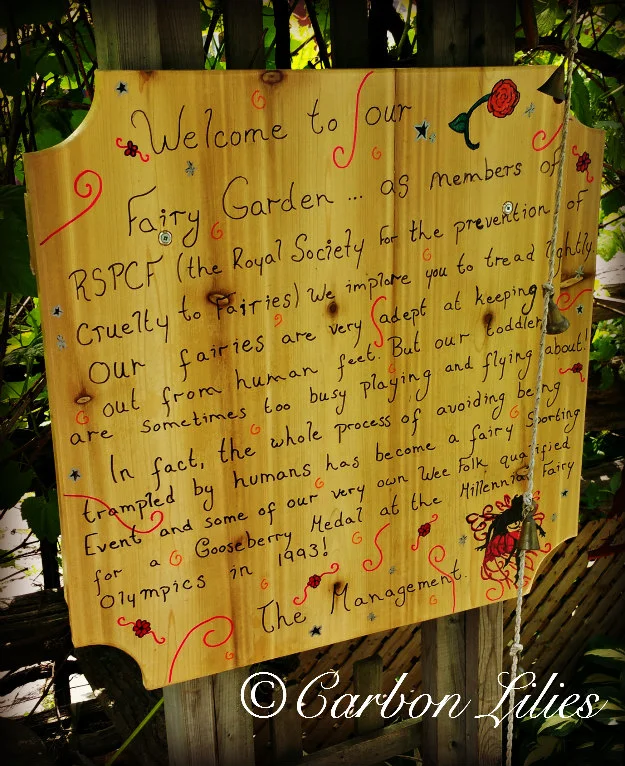 Welcome to our
Fairy Garden ... as members of
RSPCF (the Royal Society for the prevention of
Cruelty to Fairies) We implore you to tread lightly.
Our fairies are very adept at keeping
out from human feet. But our toddlers
are sometimes too busy playing and flying about!
In fact, the whole process of avoiding being
trampled by humans has become a fairy Sporting
Event and some of our very own Wee Folk qualified
for a Gooseberry Medal at the Millennial Fairy
Olympics in 1993!
The Management.
©Carbon Lilies